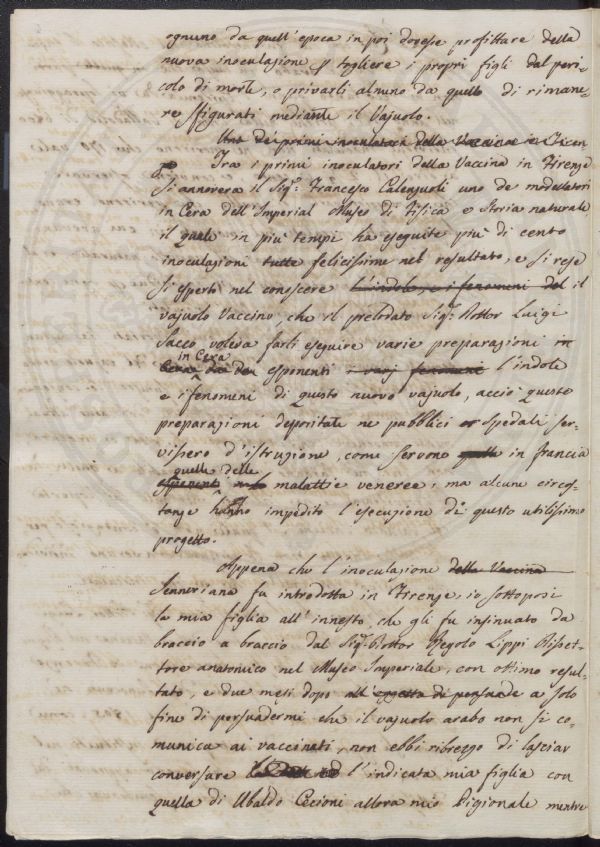 ognuno da quell'epoca in poi dovesse profittare della
nuova inoculasione p togliere i propri figli dal peri-
colo di morte, o privarli almeno da quello di rimane-
re sfigurati mediante il Vajuolo.
Uno dei primi inoculatori della Vaccina in Firen
Tra i primi inoculatori della Vaccina in Firenze
si annovera il Sig.r Francesco Calenzuoli uno de modellatori
in Cera dell'Imperial Museo di Fisica e Storia naturale
il quale in più tempi ha eseguite più di cento
inoculasioni tutte felicissime nel resultato, e si rese
sì esperto nel conoscere l'indole, e i fenomeni del il
vajuolo Vaccino, che il prelodato Sig.r Dottor Luigi
Sacco voleva farli eseguire varie preparazioni in
in Cera
Cera esponenti i varj fenomeni l'indole
e i fenomeni di questo nuovo vajuolo, acciò queste
preparazioni depositate ne pubblici Spedali ser-
vissero d'istruzione, come servono quelle in francia
quelle delle
esponenti malattie veneree; ma alcune circos-
tanze hanno impedito l'esecuzione di questo utilissimo
progetto.
Appena che l'inoculasione della Vaccina
Jenneriana fu introdotta in Firenze, io sottoposi
la mia figlia all'innesto, che gli fu insinuato da
braccio a braccio dal Sig.r Dottor Regolo Lippi Disset-
tore anatomico nel Museo Imperiale, con ottimo resul-
tato, e due mesi dopo all'oggetto di persuade a solo
fine di persuadermi che il vajuolo arabo non si co-
munica ai vaccinati, non ebbi ribrezzo di lasciar
conversare l'indicata mia figlia con
quella di Ubaldo Cecioni allora mio Pigionale mentre